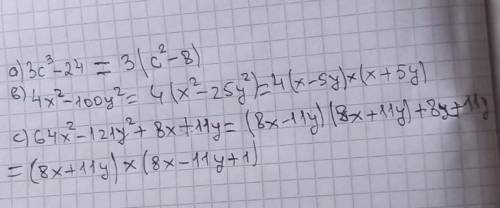 a) 3c³-24 = 3(c²-8)
b) 4x²-100y² = 4(x²-25y²)=4(x-5y)×(x+5y)
c) 64x²-121y²+8x+11y= (8x-11y)(8x+11y)+8y+11y
=(8x+11y)×(8x-11y+1)